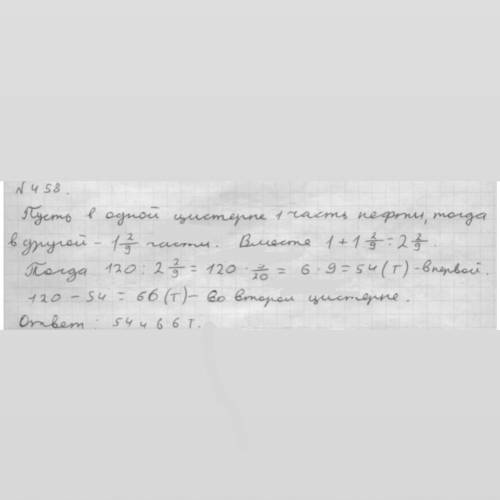 N 458.
Пусть в одной цистерне 1 часть нефти, тогда
в другой - 1 2/9 части. Вместе 1 + 1 2/9 = 2 2/9.
Тогда 120 : 2 2/9 = 120 · 9/20 = 6 · 9 = 54 (т) - в первой.
120 - 54 = 66 (т) - во второй цистерне.
Ответ: 54 и 66 т.